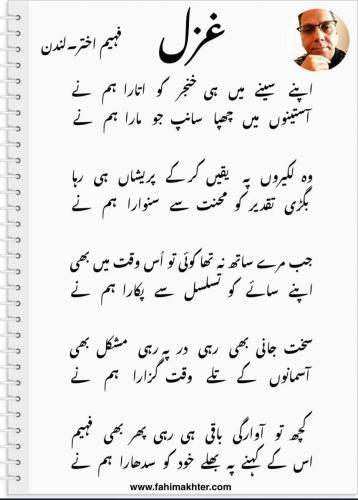 غزل
فہیم اختر۔لندن
اپنے سینے میں ہی خنجر کو اتارا ہم نے
آستینوں میں چھپا سانپ جو مارا ہم نے
وہ لکیروں پہ یقیں کرکے پریشاں ہی رہا
بگڑی تقدیر کو محنت سے سنوارا ہم نے
جب مرے ساتھ نہ تھا کوئی تو اُس وقت میں بھی
اپنے سائے کو تسلسل سے پکارا ہم نے
سخت جانی بھی رہی در پہ رہی مشکل بھی
آسمانوں کے تلے وقت گزارا ہم نے
کچھ تو آوارگی باقی ہی رہی پھر بھی فہیم
اس کے کہنے پہ بھلے خود کو سدھارا ہم نے
www.fahimakhter.com